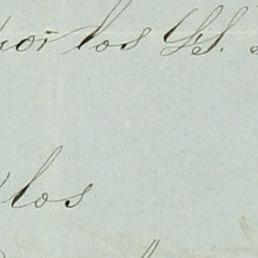 por los SS.
los